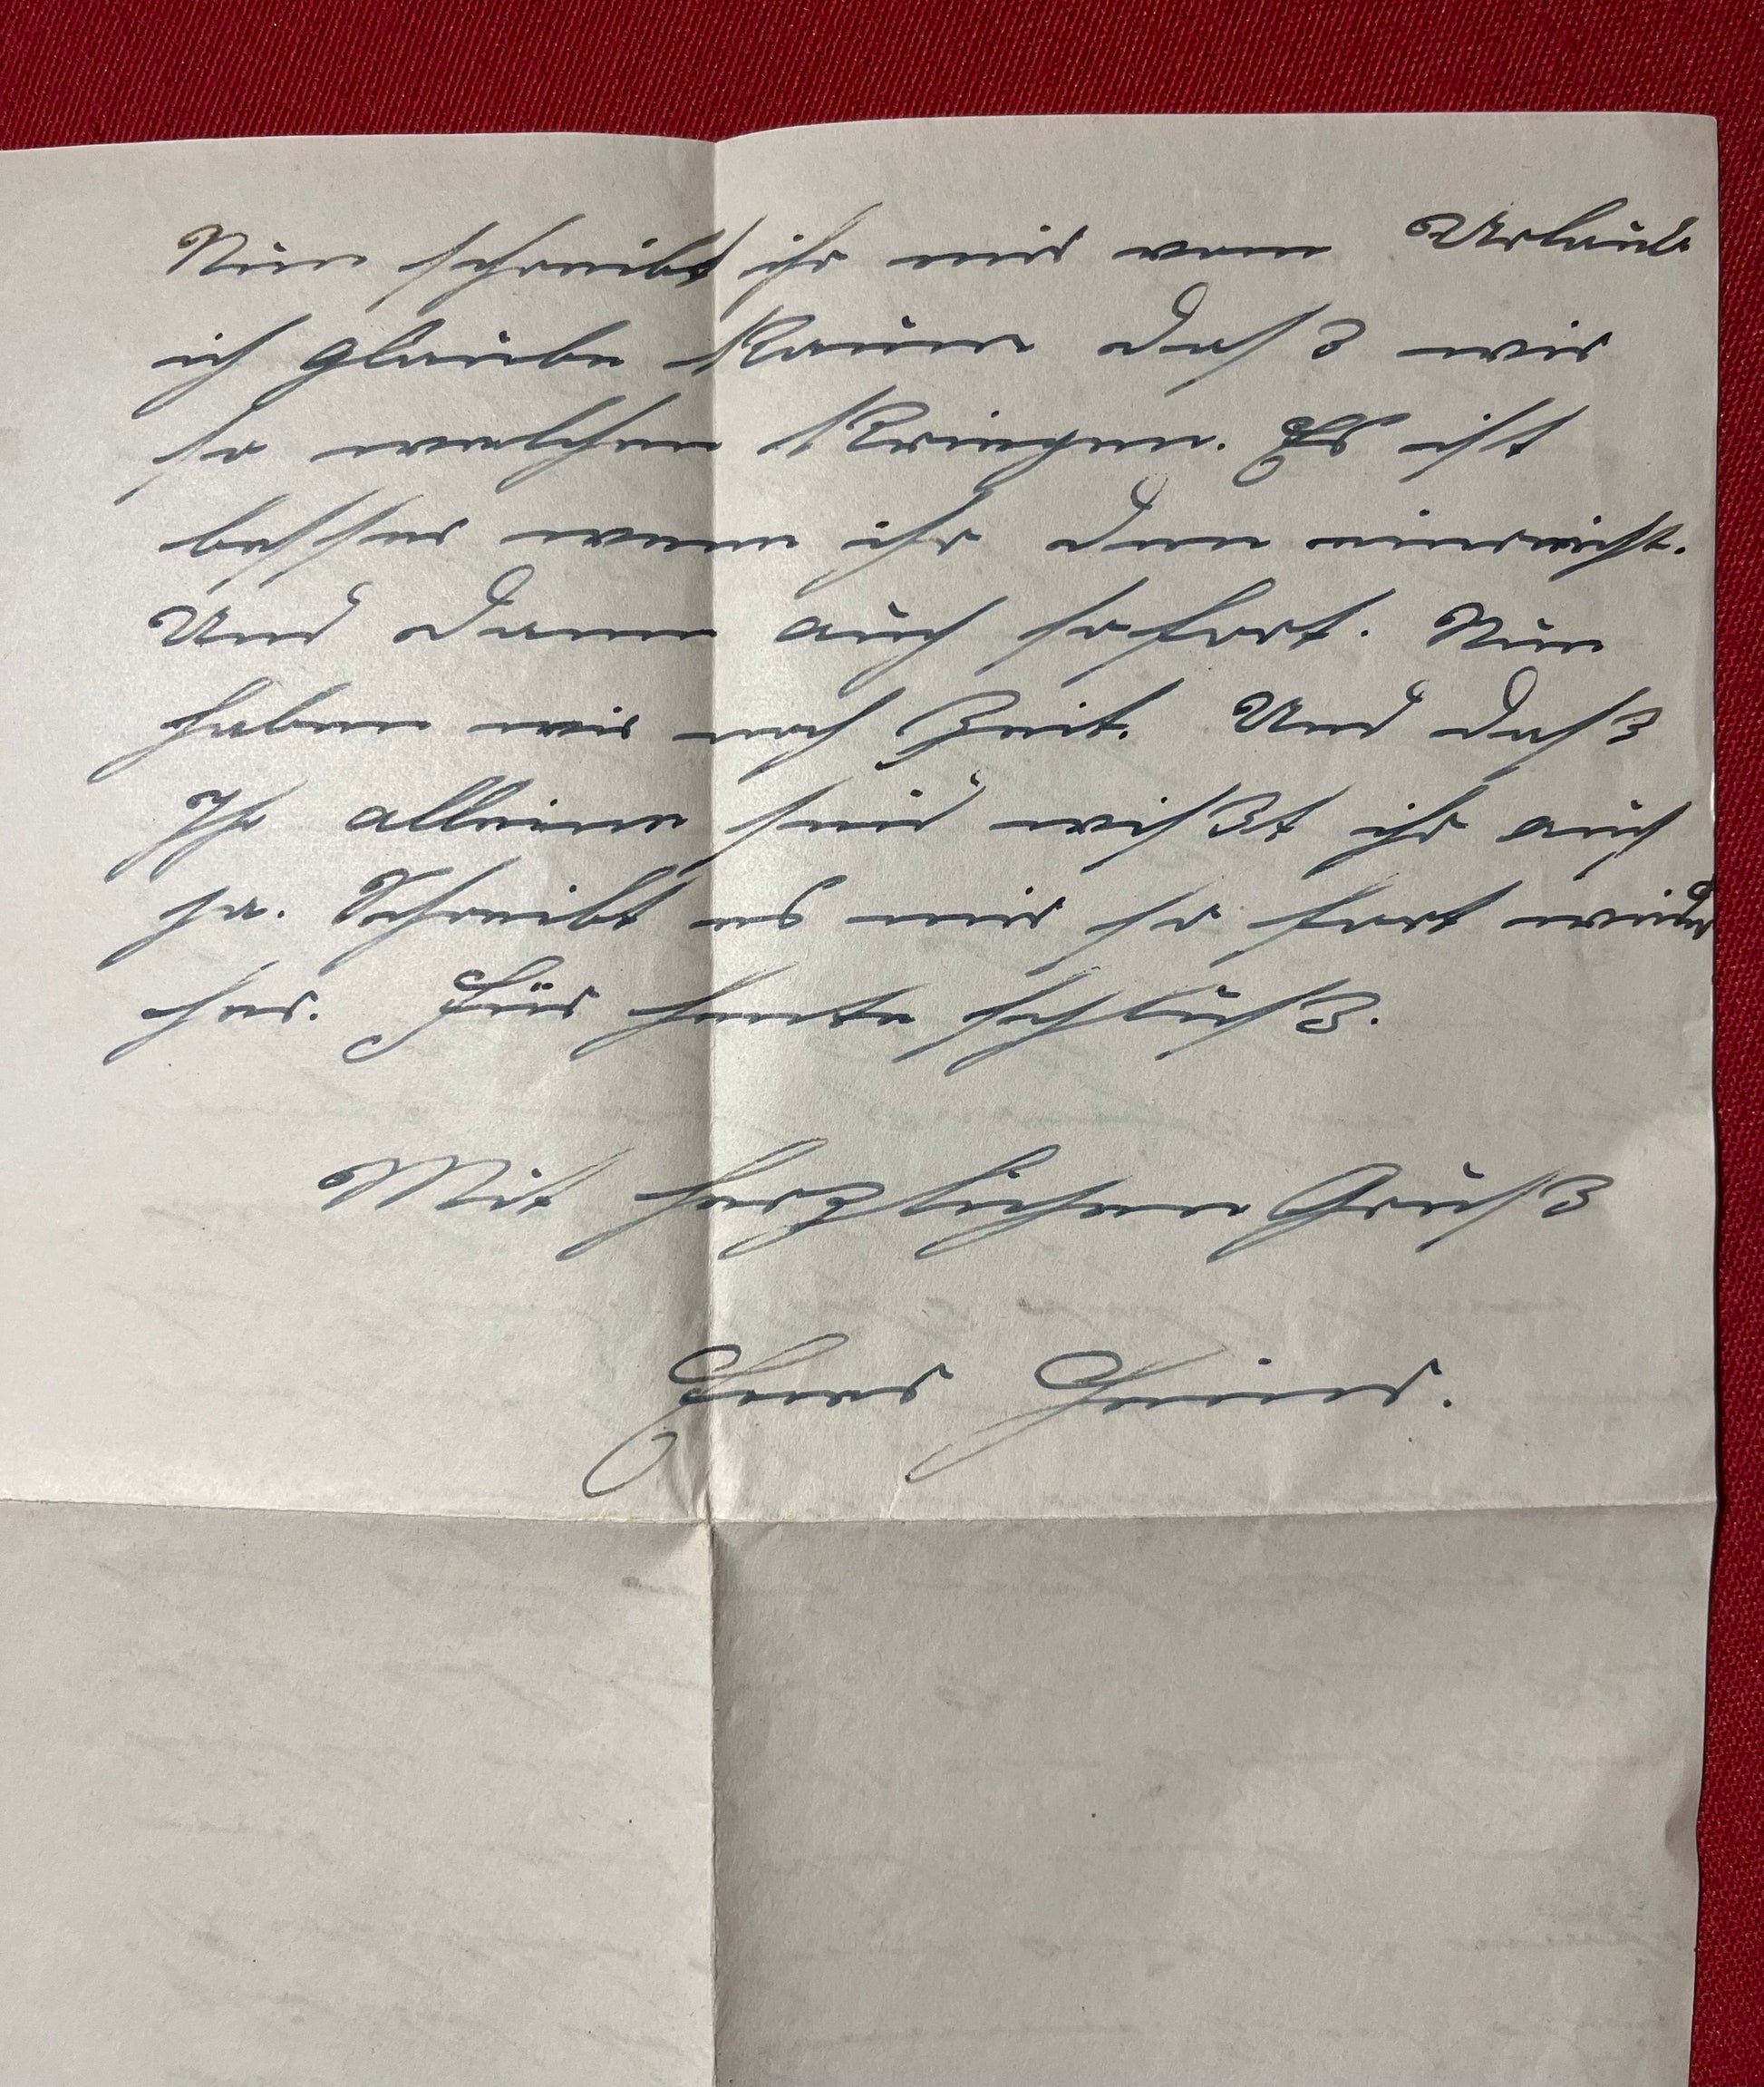 Nun schreibt ihr mir vom Urlaub.
ich glaube kaum daß wir
so welchen kriegen. Es ist
besser wenn ihr den einreicht.
Und dann auch sofort. Nun
haben wir noch Zeit. Und daß
Ihr alleine seid wißt ihr auch
ja. Schreibt es mir so fort wieder
her. Für heute schluß.
Mit herzlichen Gruß
Euer Heiner.